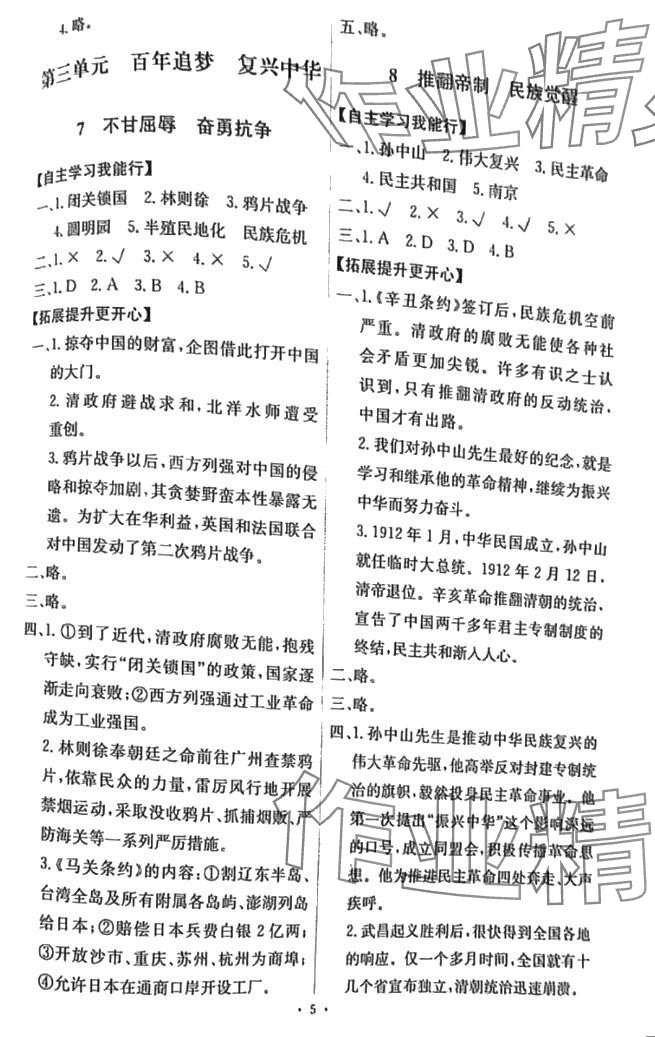 4.略。
第三单元 百年追梦 复兴中华
7 不甘屈辱 奋勇抗争
【自主学习我能行】
一、1.闭关锁国 2.林则徐 3.鸦片战争
4.圆明园 5.半殖民地化 民族危机
二、1.× 2.√ 3.× 4.× 5.√
三、1.D 2.A 3.B 4.B
【拓展提升更开心】
一、1.掠夺中国的财富，企图借此打开中国
的大门。
2.清政府避战求和，北洋水师遭受
重创。
3.鸦片战争以后，西方列强对中国的侵
略和掠夺加剧，其贪婪野蛮本性暴露无
遗。为扩大在华利益，英国和法国联合
对中国发动了第二次鸦片战争。
二、略。
三、略。
四、1.①到了近代，清政府腐败无能，抱残
守缺，实行“闭关锁国”的政策，国家逐
渐走向衰败；②西方列强通过工业革命
成为工业强国。
2.林则徐奉朝廷之命前往广州查禁鸦
片，依靠民众的力量，雷厉风行地开展
禁烟运动，采取没收鸦片、抓捕烟贩、严
防海关等一系列严厉措施。
3.《马关条约》的内容：①割辽东半岛、
台湾全岛及所有附属各岛屿、澎湖列岛
给日本；②赔偿日本兵费白银2亿两；
③开放沙市、重庆、苏州、杭州为商埠；
④允许日本在通商口岸开设工厂。
五、略。
8 推翻帝制 民族觉醒
【自主学习我能行】
一、1.孙中山 2.伟大复兴 3.民主革命
4.民主共和国 5.南京
二、1.√ 2.× 3.√ 4.√ 5.×
三、1.C 2.D 3.D 4.B
【拓展提升更开心】
一、1.《辛丑条约》签订后，民族危机空前
严重。清政府的腐败无能使各种社
会矛盾更加尖锐。许多有识之士认
识到，只有推翻清政府的反动统治，
中国才有出路。
2.我们对孙中山先生最好的纪念，就是
学习和继承他的革命精神，继续为振兴
中华而努力奋斗。
3.1912年1月，中华民国成立，孙中山
就任临时大总统。1912年2月12日，
清帝退位。辛亥革命推翻清朝的统治，
宣告了中国两千多年君主专制制度的
终结，民主共和渐入人心。
二、略。
三、略。
四、1.孙中山先生是推动中华民族复兴的
伟大革命先驱，他高举反对封建专制统
治的旗帜，毅然投身民主革命事业。他
第一次提出“振兴中华”这个影响深远
的口号，成立同盟会，积极传播革命思
想。他为推进民主革命四处奔走、大声
疾呼。
2.武昌起义胜利后，很快得到全国各地
的响应。仅一个多月时间，全国就有十
几个省宣布独立，清朝统治迅速崩溃。
· 5 ·
作业精
作业精